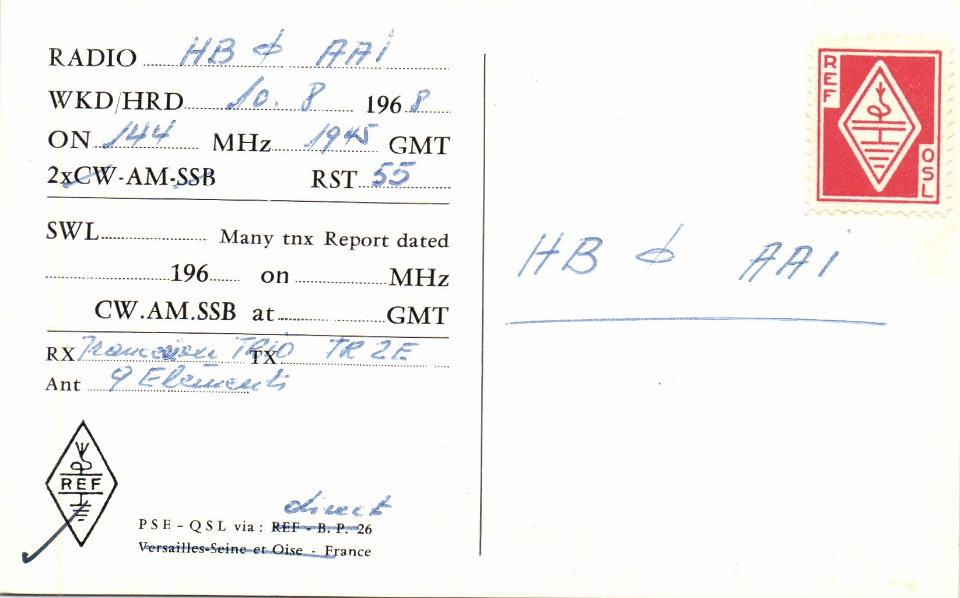 RADIO HB Ø AAI
WKD/HRD 10. 8 1968
ON 144 MHz 1945 GMT
2xCW-AM-SSB RST 55
SWL Many tnx Report dated
196 on MHz
CW.AM.SSB at GMT
RX TRIO TX TR 2E
Ant 9 Elementi
REF
direct
PSE - QSL via : REF - B. P. 26
Versailles-Seine et Oise - France
REF
QSL
HB Ø AAI